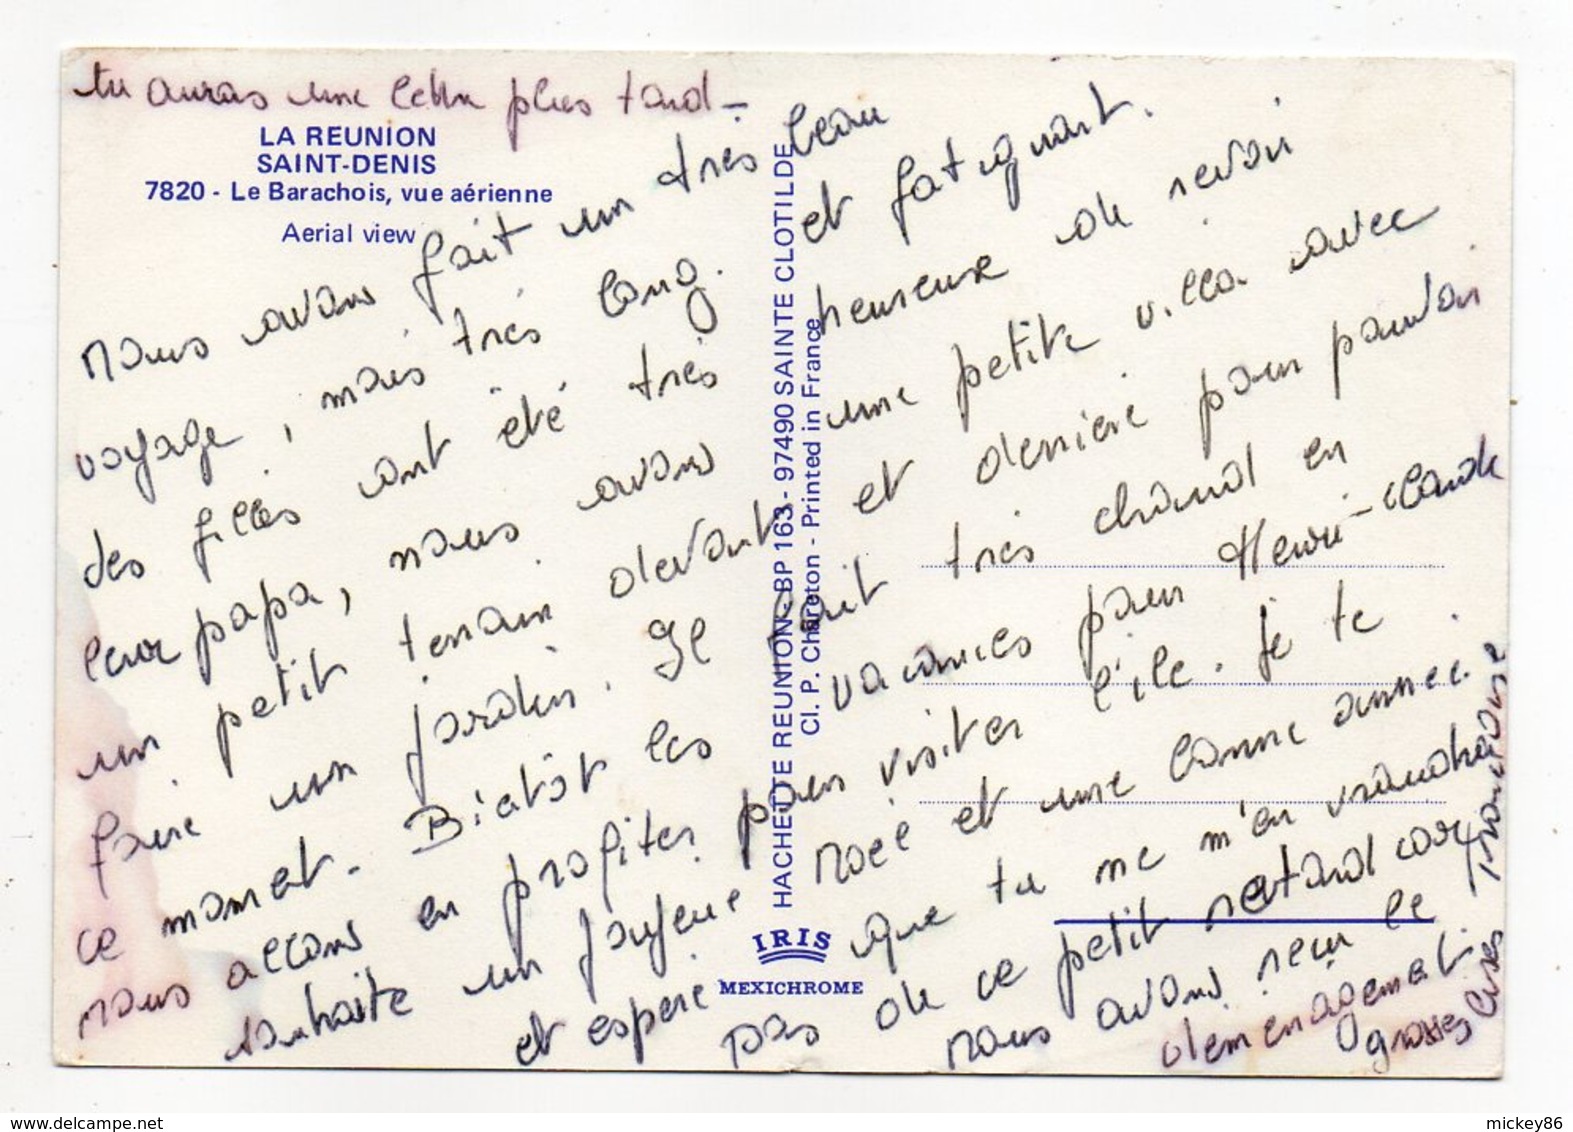 tu auras une lettre plus tard -
LA REUNION
SAINT-DENIS
7820 - Le Barachois, vue aérienne
Aerial view
Nous avons fait un très beau
voyage, mais très long. et fatiguant.
des filles ont été très heureuse de revoir
leur papa, nous avons une petite villa avec
un petit terrain devant et derrière pour pouvoir
faire un jardin. Il fait très chaud en
ce moment. Bientôt les vacances pour Henri-Claude
nous allons en profiter pour visiter l'île. Je te
souhaite un joyeux noël et une bonne année.
et espère que tu ne m'en voudra
pas de ce petit retard car
nous avons reçu le
demenagement
grosses bises
Françoise
HACHETTE REUNION-BP 163 - 97490 SAINTE CLOTILDE
Cl. P. Chareton - Printed in France
IRIS
MEXICHROME
www.delcampe.net
mickey86